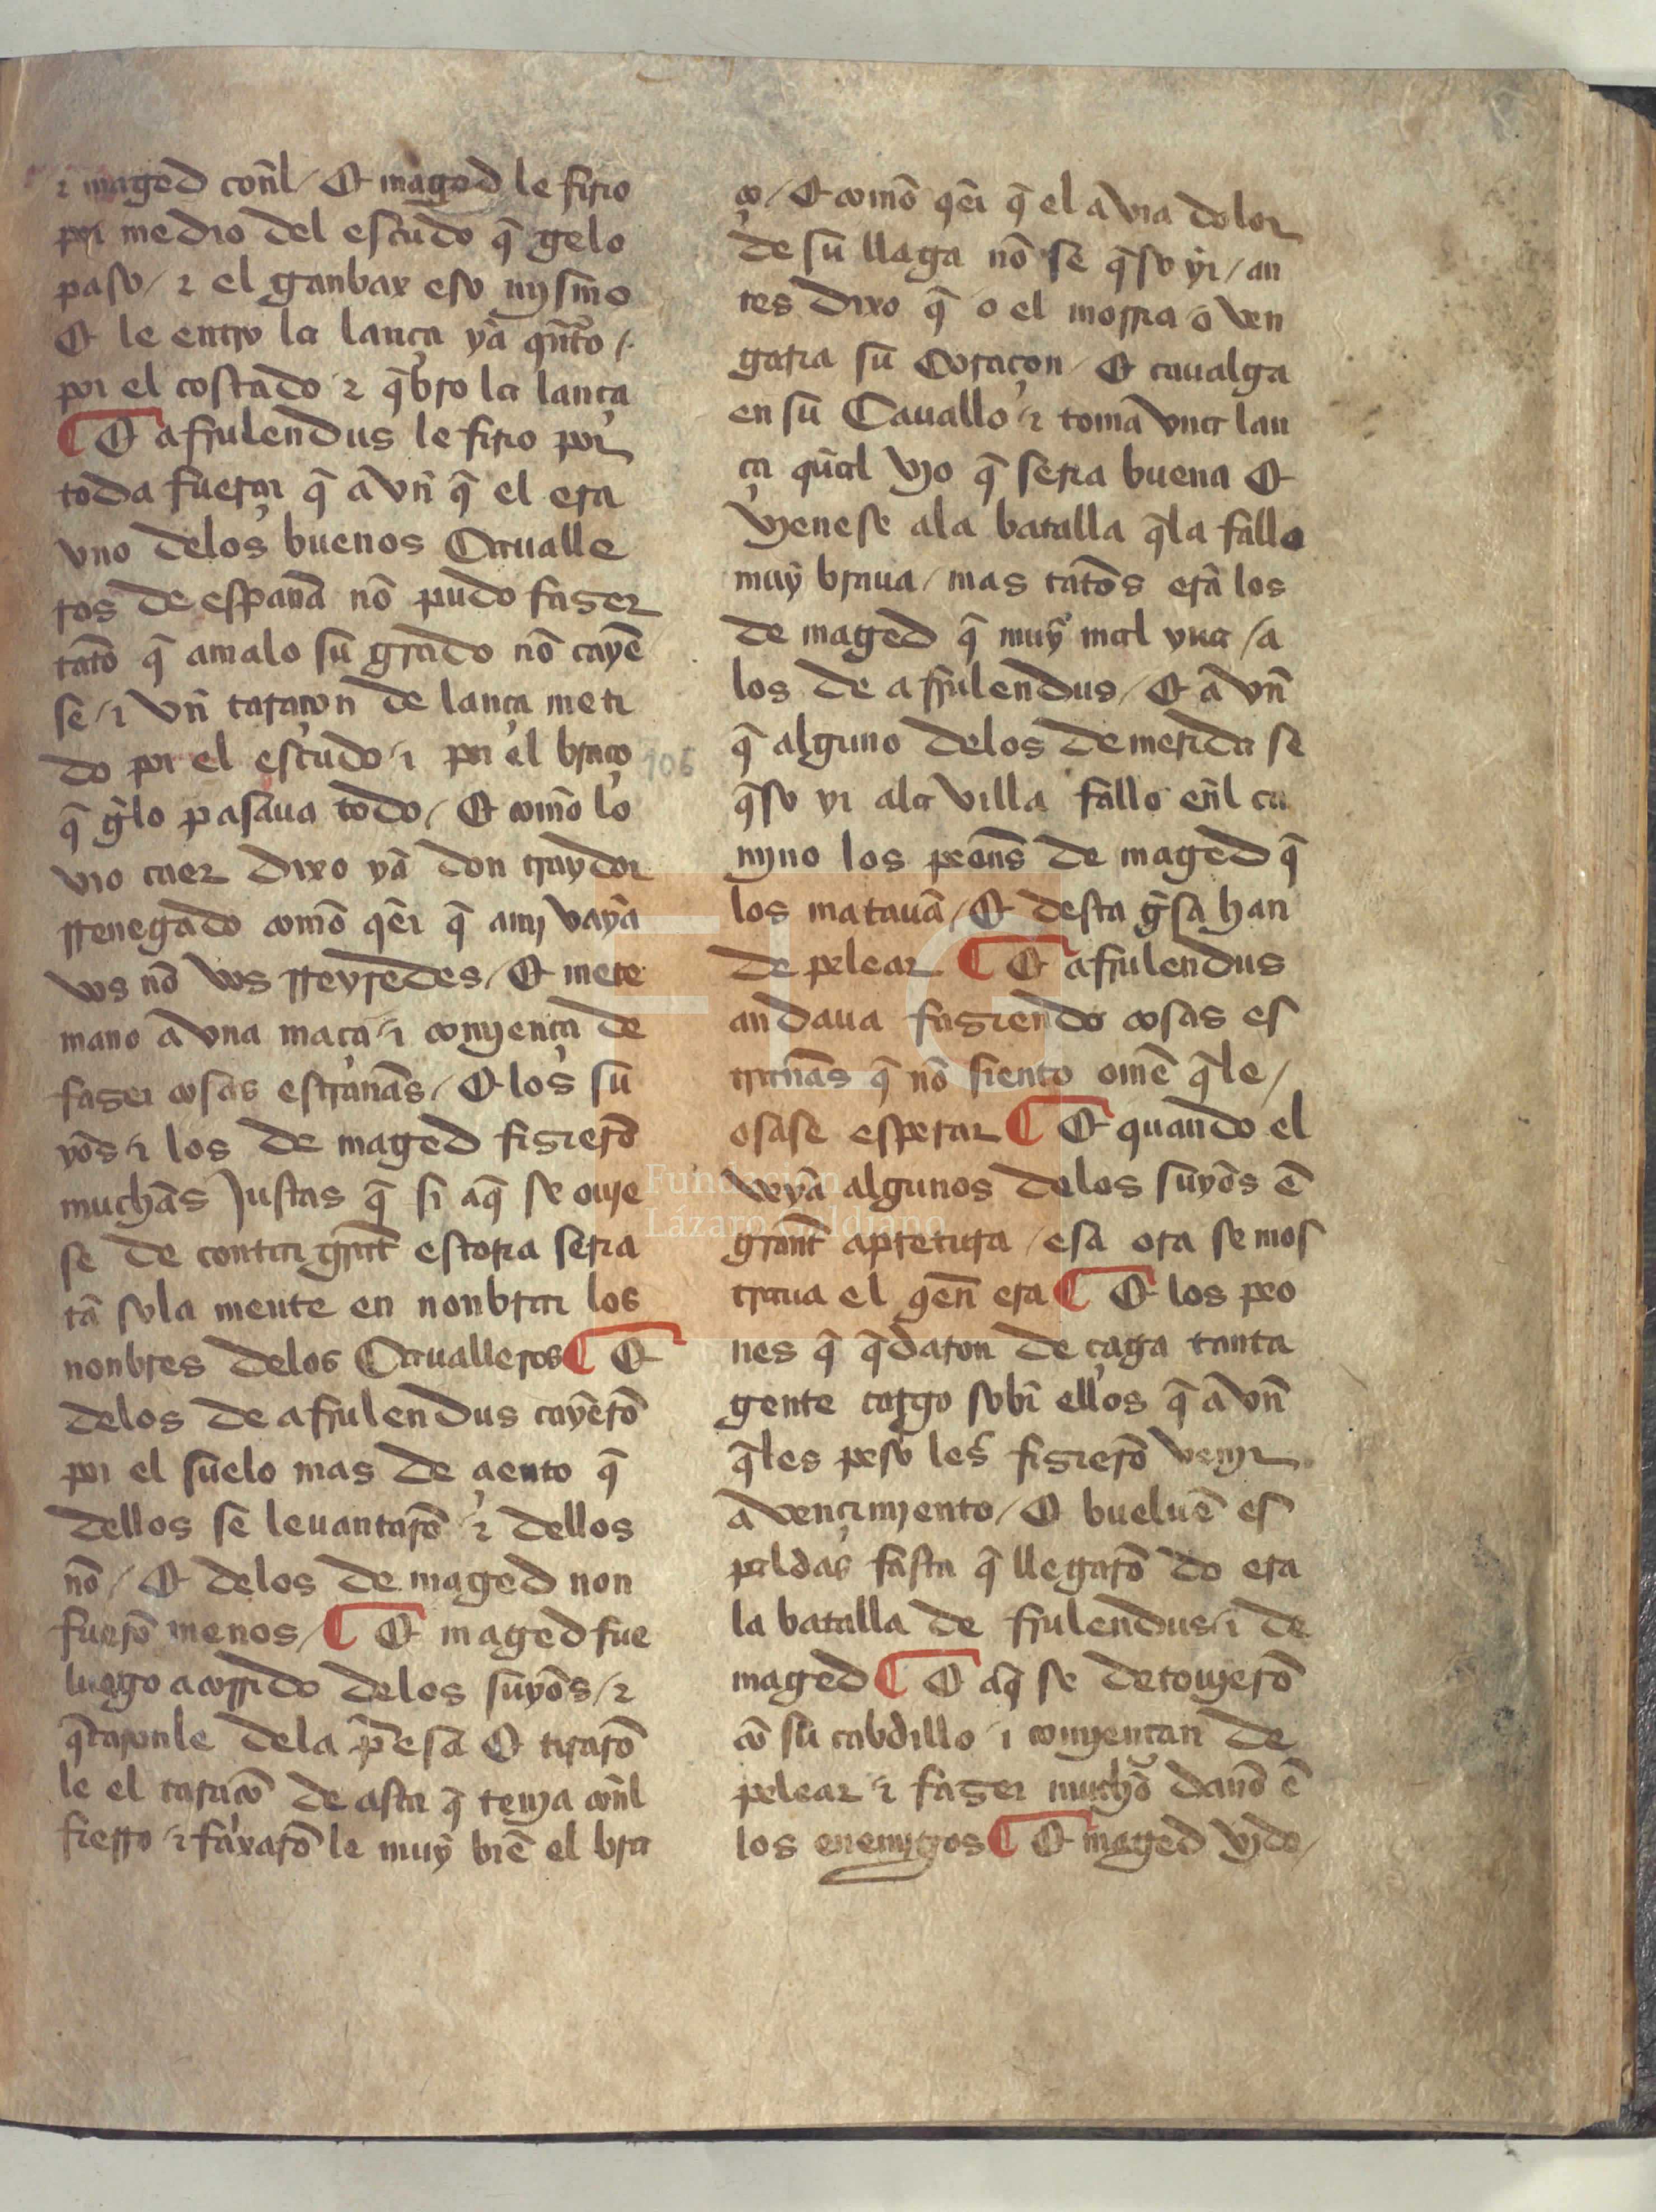 ⁊ maged cõnl / Et maged le firio
por medio del escudo q̃ gelo
paso / ⁊ el ganbax eso mjsmo
Et le entro la lança yã qñto /
por el costado ⁊ q̃bro la lança
¶ Et affrulendus le firio por
toda fuerça q̃ avn̄ q̃ el era
vno delos buenos Caualle
ros de españa nõ pudo fazer
tãto q̃ amalo su grado nõ cayẽ
se / ⁊ vn̄ taraçon de lança meti
do por el escudo ⁊ por el braço
q̃ g̃lo pasaua todo / Et comõ lo
vio caer dixo yã don traydor
rrenegado comõ q̃er q̃ amj vaya
vos nõ vos rreyredes / Et mete
mano a vna maça ⁊ comjença de
fazer cosas estrañas / Et los su
yos ⁊ los de maged fizierõ
muchas Justas q̃ si aq̃ se ovje
se de contar grãt estoria seria
tã sola mente en nonbrar los
nonbres delos Caualleros ¶ Et
delos de affrulendus cayerõ
por el suelo mas de çiento q̃
dellos se leuantarõ ⁊ dellos
nõ / Et delos de maged non
fuerõ menos / ¶ Et maged fue
luego acorrido delos suyos / ⁊
q̃taronle dela p̃esa Et tirarõ
le el taraçõ de asta q̃ tenja cõnl
fierro ⁊ faxarõ le muy biẽ el bra
ço / Et comõ q̃er q̃ el avia dolor
de su llaga nõ se q̃so yr / an
tes dixo q̃ o el morria o ven
garia su Coraçon / Et caualga
en su Cauallo ⁊ toma vna lan
ça qual vjo q̃ seria buena Et
vjenese ala batalla q̃la fallo
muy braua / mas tãtos erã los
de maged q̃ muy mal yua / a
los de affrulendus / Et avn̄
q̃ alguno delos de merida se
q̃so yr ala villa fallo enl ca
mjno los peoñs de maged q̃
los matauã / Et desta g̃sa han
de pelear ¶ Et affrulendus
andaua faziendo cosas es
trañas q̃ nõ siento omẽ q̃le /
osase esperar ¶ Et quando el
veya algunos delos suyos ẽ
grañt apretura / esa ora se mos
traua el q̃en era ¶ Et los peo
nes q̃ q̃daron de çaga tanta
gente cargo sobr̃ ellos q̃ avn̄
q̃les peso les fizierõ venjr
a vençimjento / Et bueluẽ es
paldas fasta q̃ llegarõ do era
la batalla de ffrulendus ⁊ de
maged ¶ Et aq̃ se detovjerõ
cõ su cabdillo ⁊ comjençan de
pelear ⁊ fazer mucho daño ẽ
los enemjgos ¶ Et maged vjdo /
106
FLG
Fundación
Lázaro Galdiano